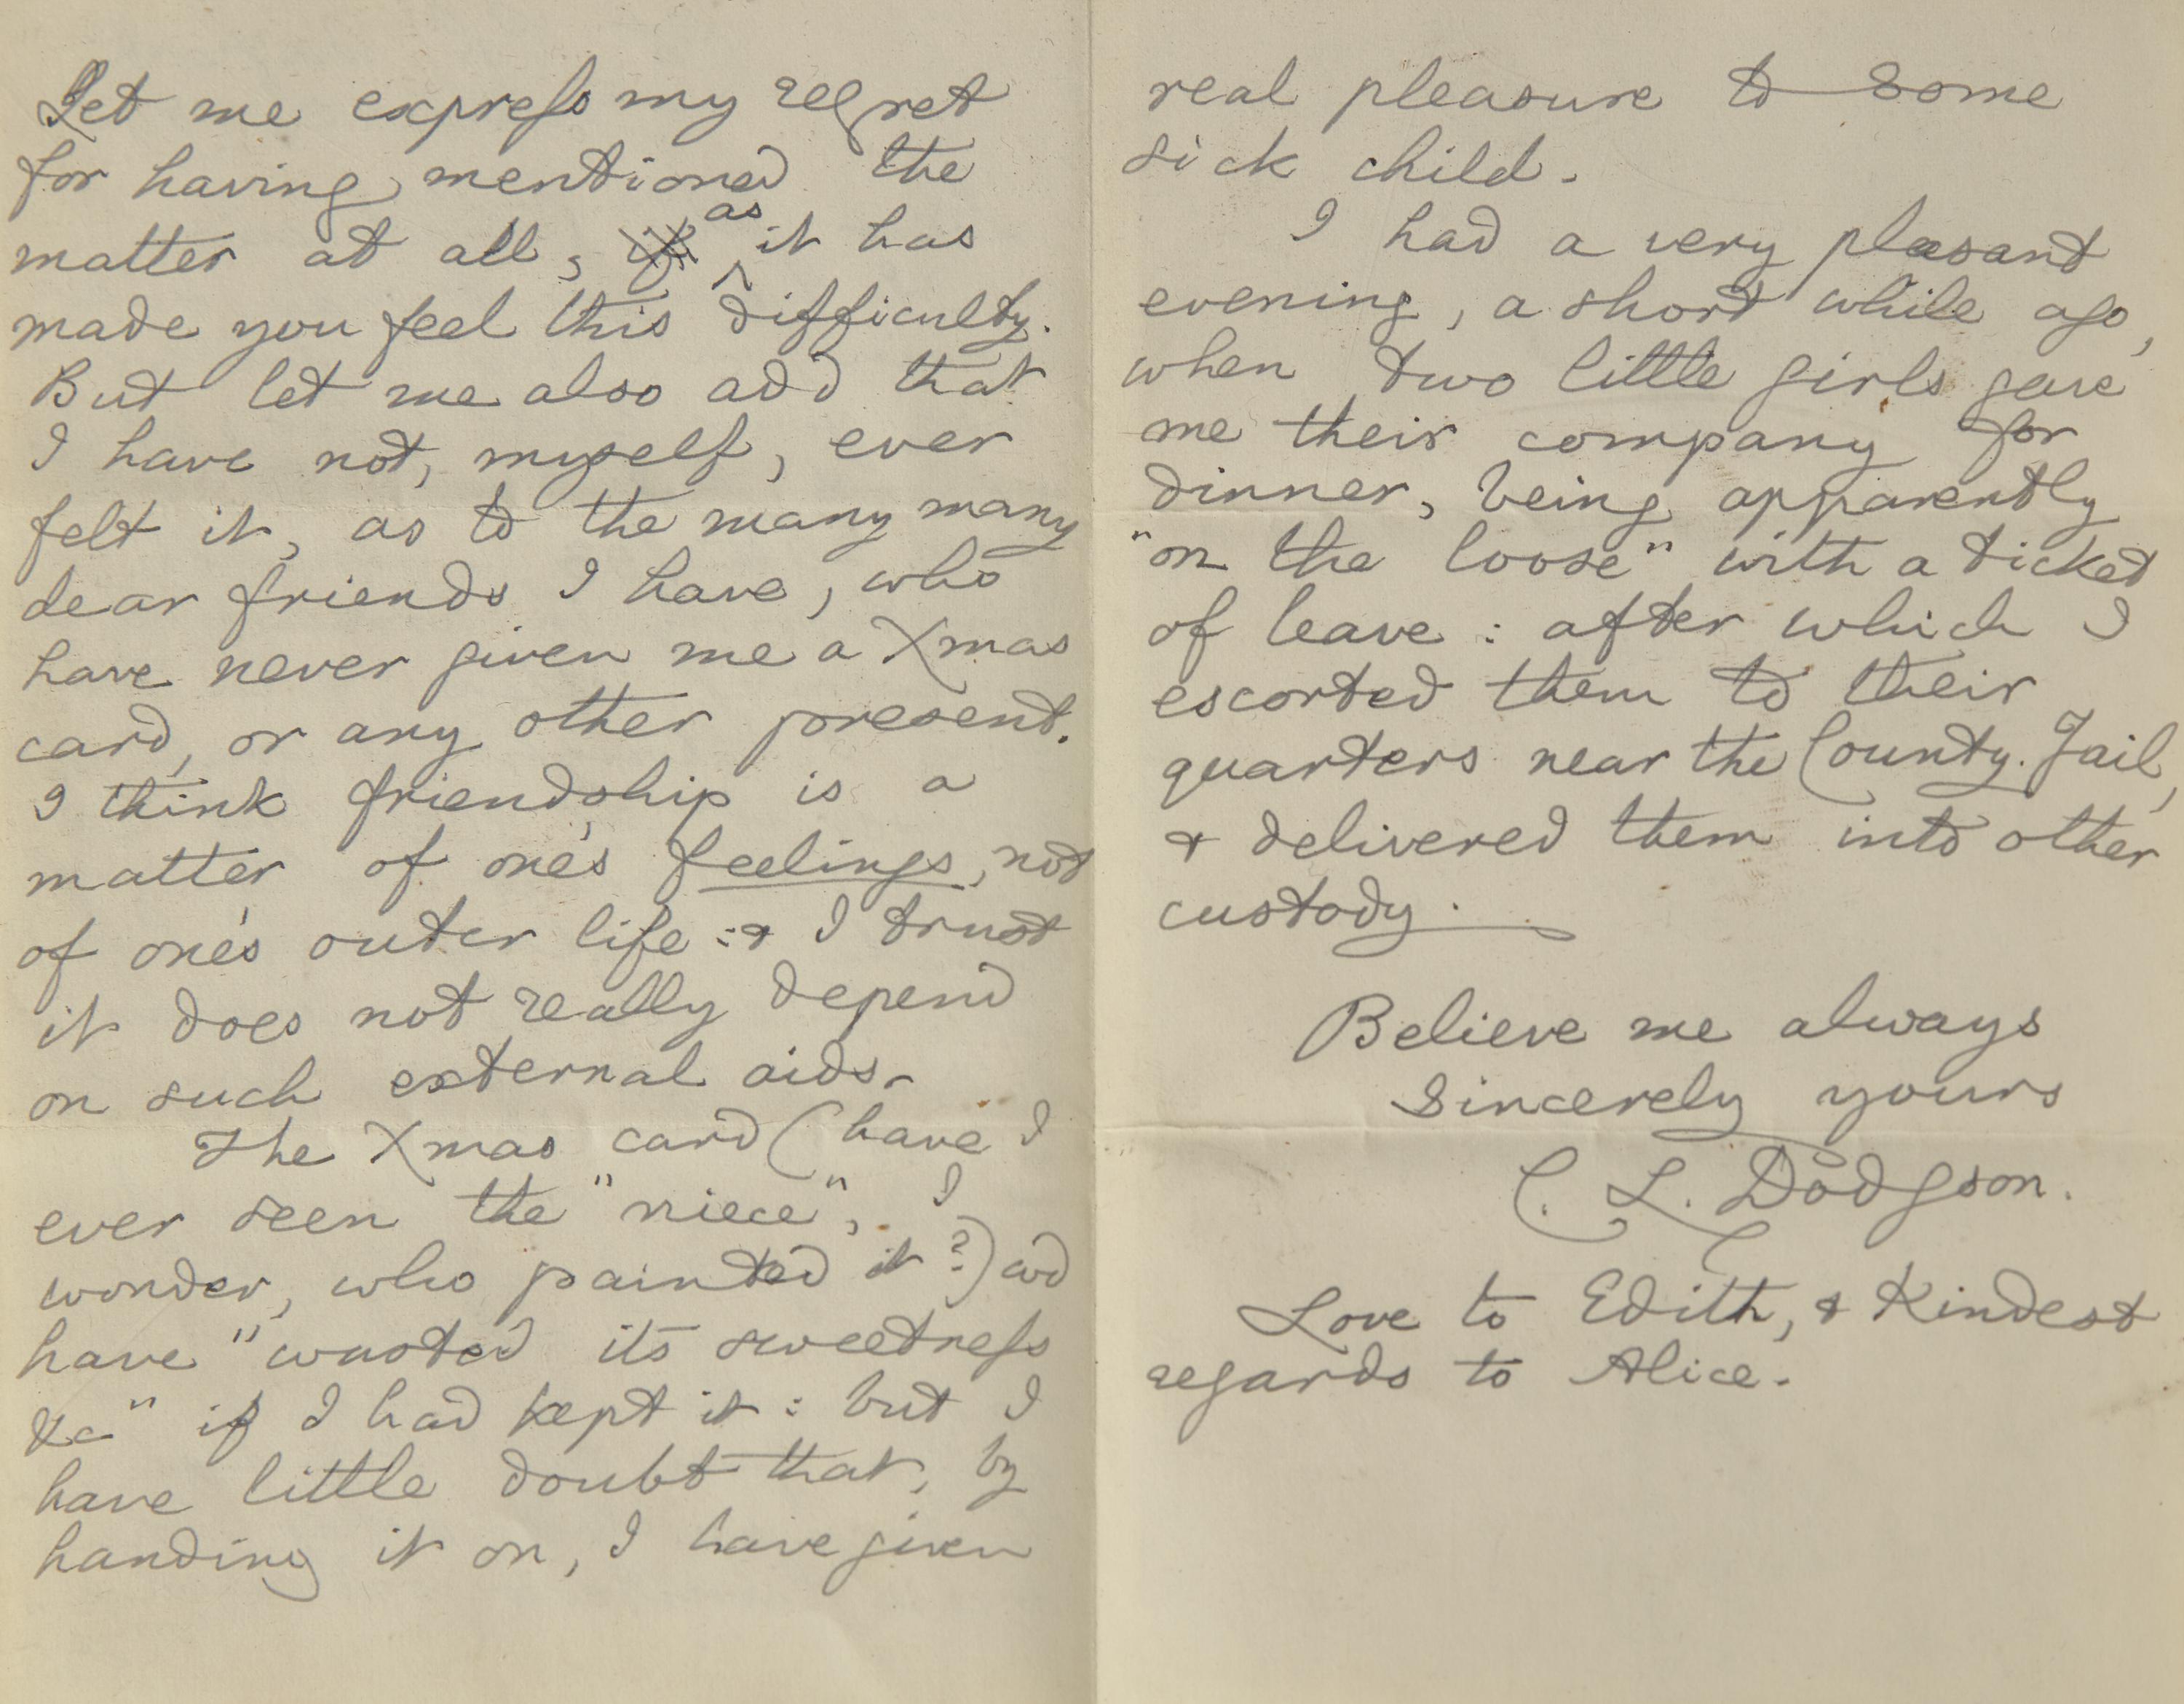 Let me express my regret
for having mentioned the
matter at all, if as it has
made you feel this difficulty.
But let me also add that
I have not, myself, ever
felt it, as to the many many
dear friends I have, who
have never given me a Xmas
card, or any other present.
I think friendship is a
matter of one's feelings, not
of one's outer life: & I trust
it does not really depend
on such external aids.
The Xmas card (have I
ever seen the "niece", I
wonder, who painted it?) wd
have "wasted its sweetness
&c" if I had kept it: but I
have little doubt that, by
handing it on, I have given
real pleasure to some
sick child.
I had a very pleasant
evening, a short while ago,
when two little girls gave
me their company for
dinner, being apparently
"on the loose" with a ticket
of leave: after which I
escorted them to their
quarters near the County Jail,
& delivered them into other
custody.
Believe me always
Sincerely yours
C. L. Dodgson.
Love to Edith, & kindest
regards to Alice.